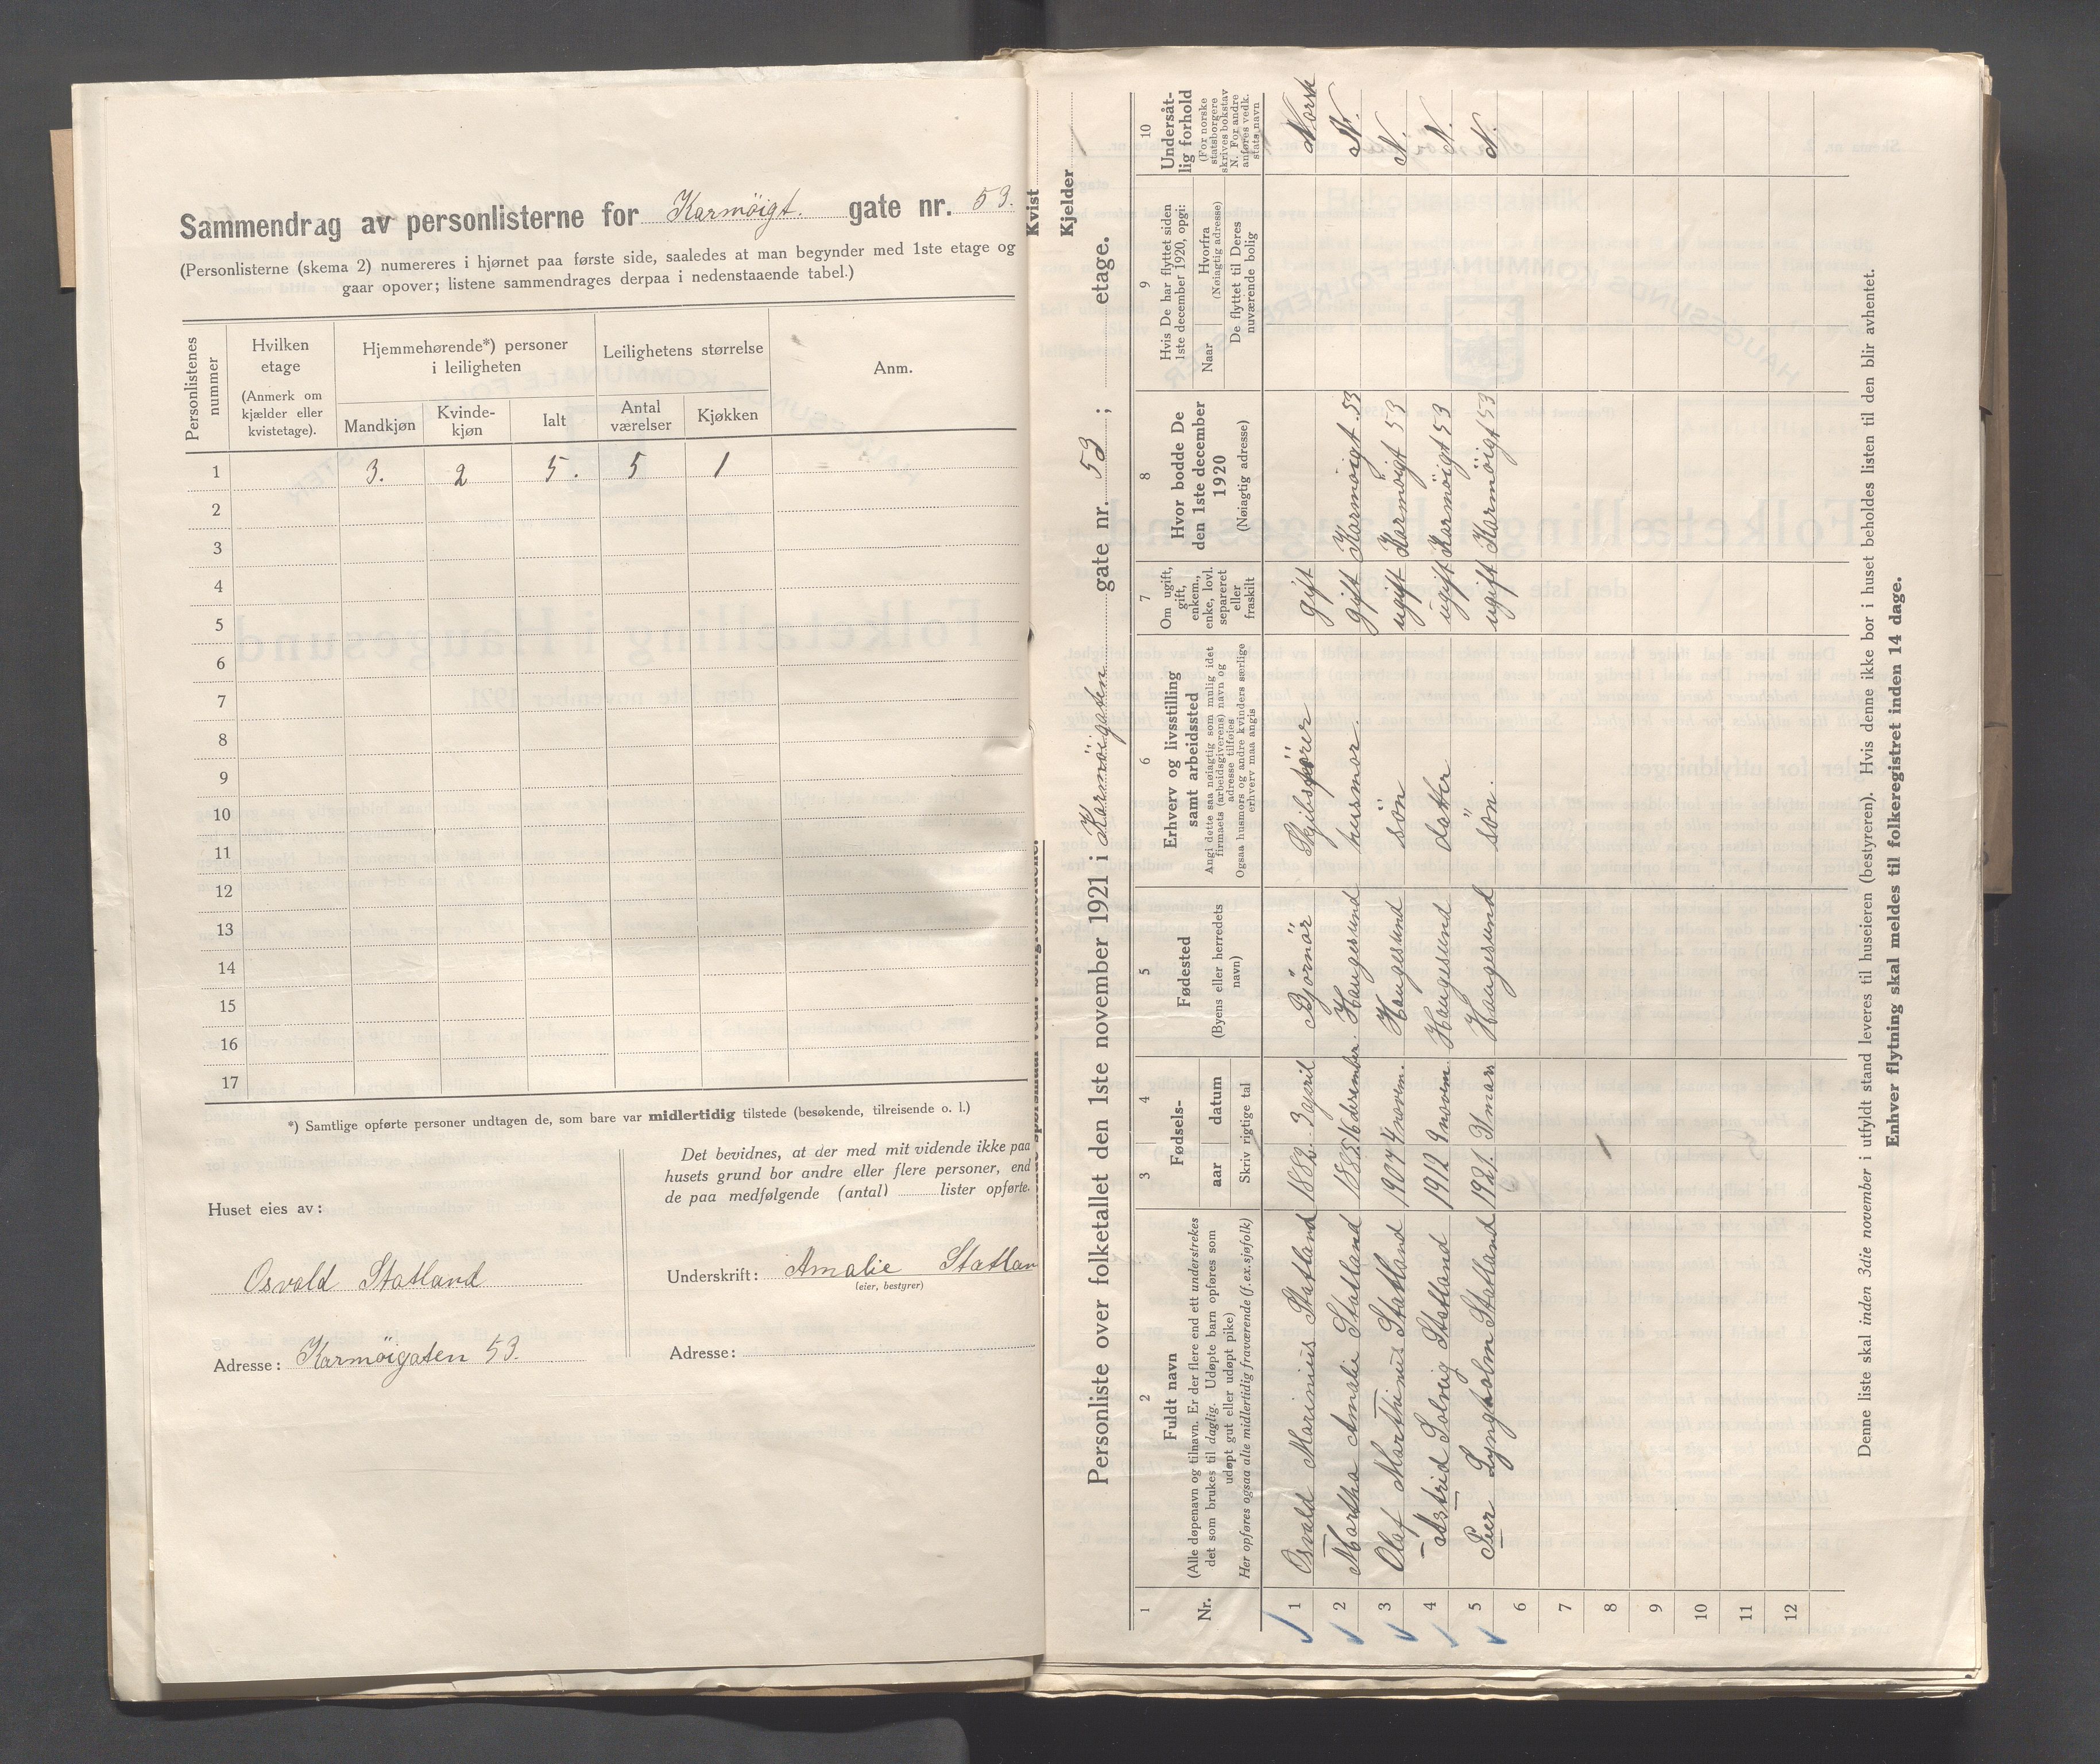 Sammendrag av personlisterne for Karmöigt. gate nr. 53.
(Personlisterne (skema 2) numereres i hjørnet paa første side, saaledes at man begynder med 1ste etage og
gaar opover; listene sammendrages derpaa i nedenstaaende tabel.)
Personlistenes nummer
Hvilken etage
(Anmerk om kjælder eller kvistetage).
Hjemmehørende*) personer i leiligheten
Mandkjøn
Kvinde-kjøn
Ialt
Leilighetens størrelse
Antal værelser
Kjøkken
Anm.
1 3. 2 5. 5 1
2
3
4
5
6
7
8
9
10
11
12
13
14
15
16
17
*) Samtlige opførte personer undtagen de, som bare var midlertidig tilstede (besøkende, tilreisende o. l.)
Huset eies av:
Osvald Statland
Adresse: Karmöigaten 53.
Det bevidnes, at der med mit vidende ikke paa
husets grund bor andre eller flere personer, end
de paa medfølgende (antal) lister opførte.
Underskrift: Amalie Statlan
(eier, bestyrer)
Adresse:
Kvist
Kjelder
Personliste over folketallet den 1ste november 1921 i Karmöigaten gate nr. 53; etage.
1
Nr.
2
Fuldt navn
(Alle døpenavn og tilnavn. Er der flere end ett understrekes
det som brukes til daglig. Udøpte barn opføres som
udøpt gut eller udøpt pike)
Her opføres ogsaa alle midlertidig fraværende (f.ex.sjøfolk)
3 4
Fødsels-
aar datum
Skriv rigtige tal
5
Fødested
(Byens eller herredets
navn)
6
Erhverv og livsstilling
samt arbeidssted
Angi dette saa nøiagtig som mulig idet
firmaets (arbeidsgiverens) navn og
adresse tilføies
Ogsaa husmors og andre kvinders særlige
erhverv maa angis
7
Om ugift,
gift,
enkem.,
enke, lovl.
separeret
eller
fraskilt
8
Hvor bodde De
den 1ste december
1920
(Nøiagtig adresse)
9
Hvis De har flyttet siden
1ste december 1920, opgi:
Naar
Hvorfra
(Nøiagtig adresse)
De flyttet til Deres
nuværende bolig
10
Undersåt-
lig forhold
(For norske
statsborgere
skrives bokstav
N. For andre
anføres vedk.
stats navn
1 Osvald Marinius Statland 1882 3 april Bjørnör Skjibsförer gift Norsk
2 Martha Amalie Statland 1885 16 desember. Haugesund husmor gift Karmöigt. 53 N.
3 Olaf Marthinus Statland 1907 4 novem. Haugesund sön ugift Karmöigt 53 N.
4 Astrid Solveig Statland 1912 9 novem. Haugesund datter ugift Karmöigt 53 N.
5 Peer Lyngholm Statland 1921. 31 mars Haugesund sön. ugift Karmöigt 53 N.
6
7
8
9
10
11
12
Denne liste skal inden 3die november i utfyldt stand leveres til huseieren (bestyreren). Hvis denne ikke bor i huset beholdes listen til den blir avhentet.
Enhver flytning skal meldes til folkeregistret inden 14 dage.